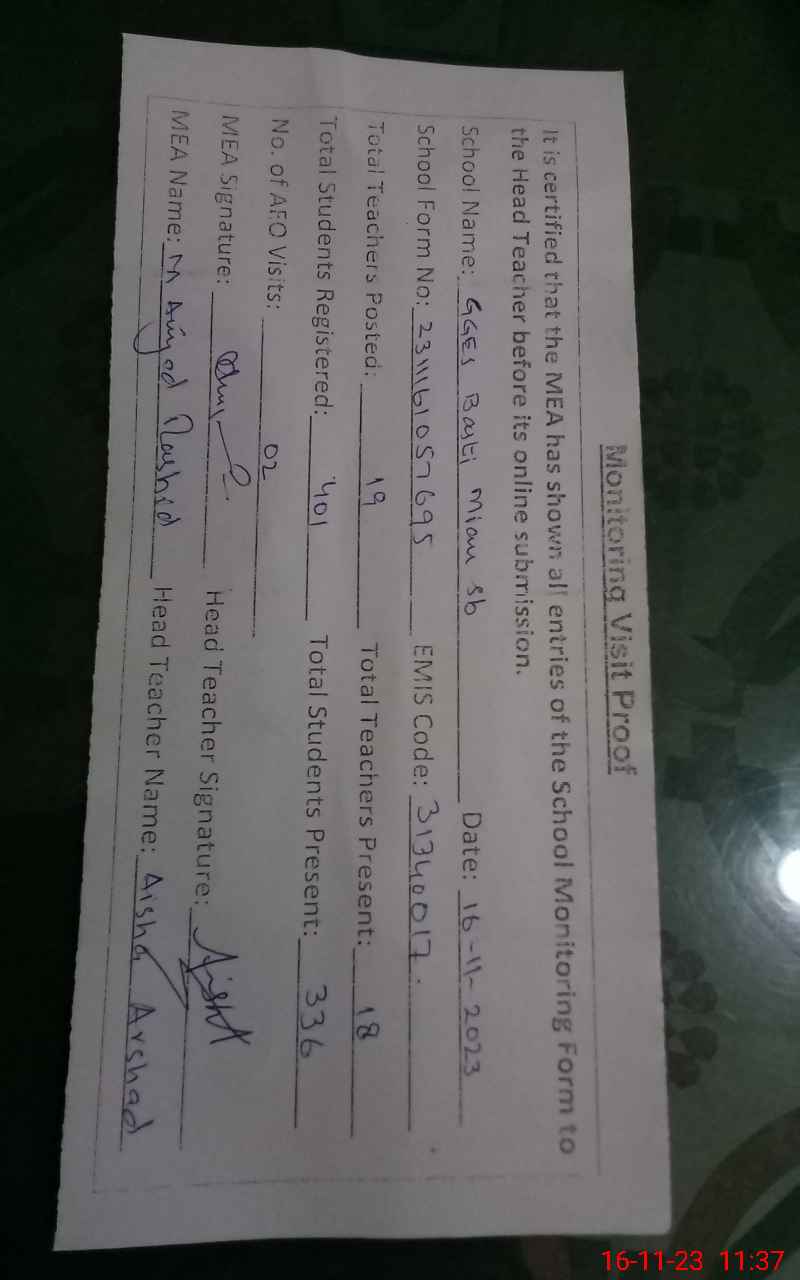 Monitoring Visit Proof
It is certified that the MEA has shown all entries of the School Monitoring Form to
the Head Teacher before its online submission.
School Name: GGES Basti Mian Sb Date: 16-11-2023
School Form No: 231116105 7695 EMIS Code: 31340017.
Total Teachers Posted: 19 Total Teachers Present: 18
Total Students Registered: 401 Total Students Present: 336
No. of AEO Visits: 02
MEA Signature: Head Teacher Signature: Aisha
MEA Name: M Rashid Head Teacher Name: Aisha Arshad
16-11-23 11:37